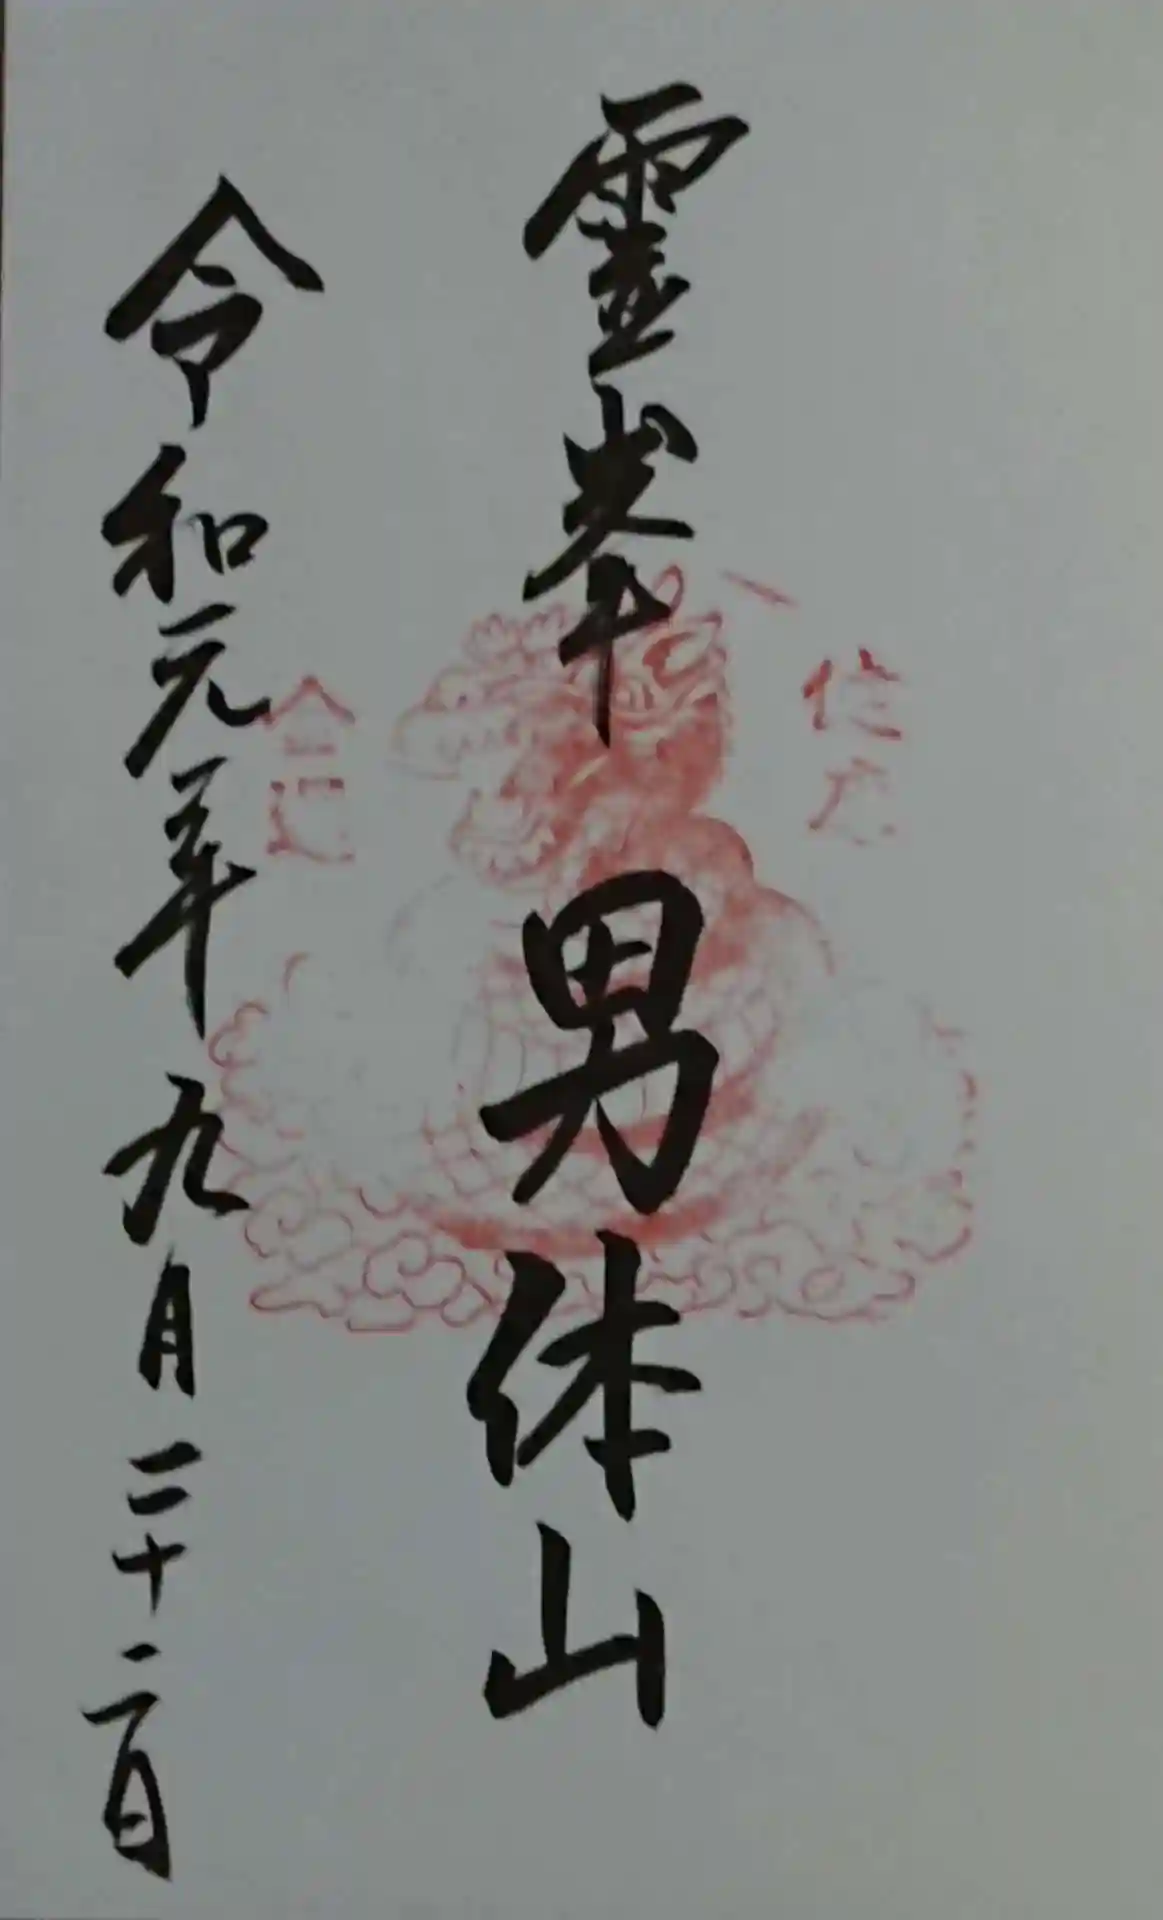 霊峯 男体山
令和元年九月二十二日